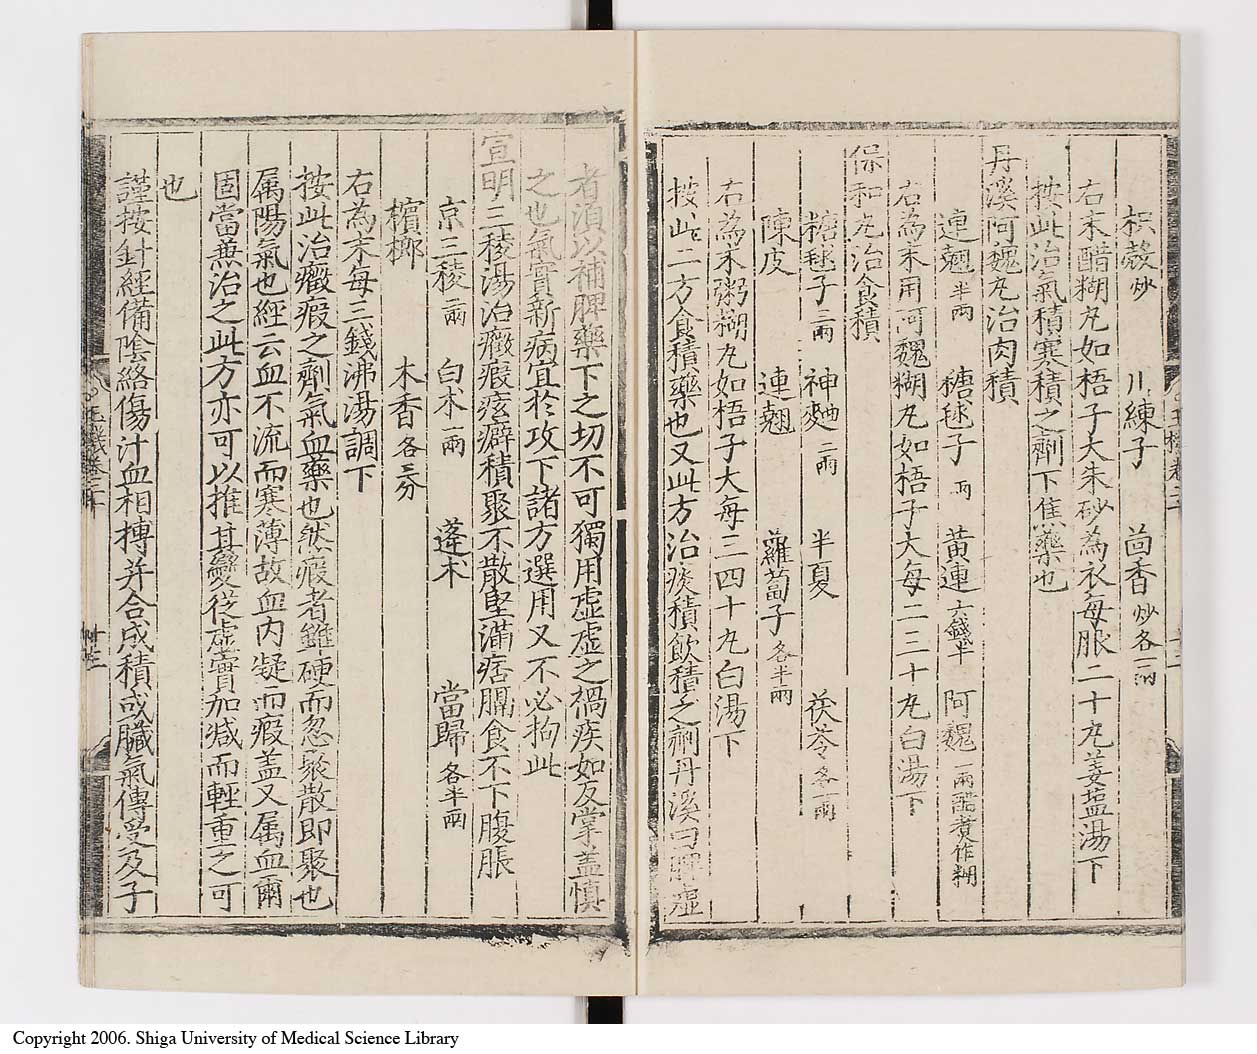 枳殼炒 川練子 茴香炒各一兩
右末醋糊丸如梧子大朱砂為衣每服二十丸姜塩湯下
按此治氣積寒積之劑下焦藥也
丹溪阿魏丸治肉積
連翹半兩 糖毬子一兩 黄連六錢半 阿魏一兩醋煮作糊
右為末用阿魏糊丸如梧子大每二三十丸白湯下
保和丸治食積
糖毬子三兩 神麯二兩 半夏 茯苓各一兩
陳皮 連翹 蘿蔔子各半兩
右為末粥糊丸如梧子大每三四十丸白湯下
按此二方食積藥也又此方治痰積飲積之劑丹溪曰脾虛
者須以補脾藥下之切不可獨用虛虛之禍疾如反掌盖慎
之也氣實新病宜於攻下諸方選用又不必拘此
宣明三稜湯治癥瘕痃癖積聚不散堅滿痞膈食不下腹脹
京三稜二兩 白术一兩 蓬术 當歸各半兩
檳榔 木香各三分
右為末每三錢沸湯調下
按此治癥瘕之劑氣血藥也然瘕者雖硬而忽聚散即聚也
属陽氣也經云血不流而寒薄故血内凝而瘕盖又属血爾
固當兼治之此方亦可以推其變從虛實加减而輕重之可
也
謹按針經備隂絡傷汁血相摶并合成積或臟氣傳受及子
Copyright 2006. Shiga University of Medical Science Library